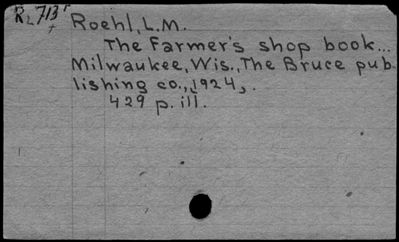 Roehl, L.M.
The Farmer's shop book...
Milwaukee, Wis., The Bruce pub
lishing co., 1924,.
429 p. ill.